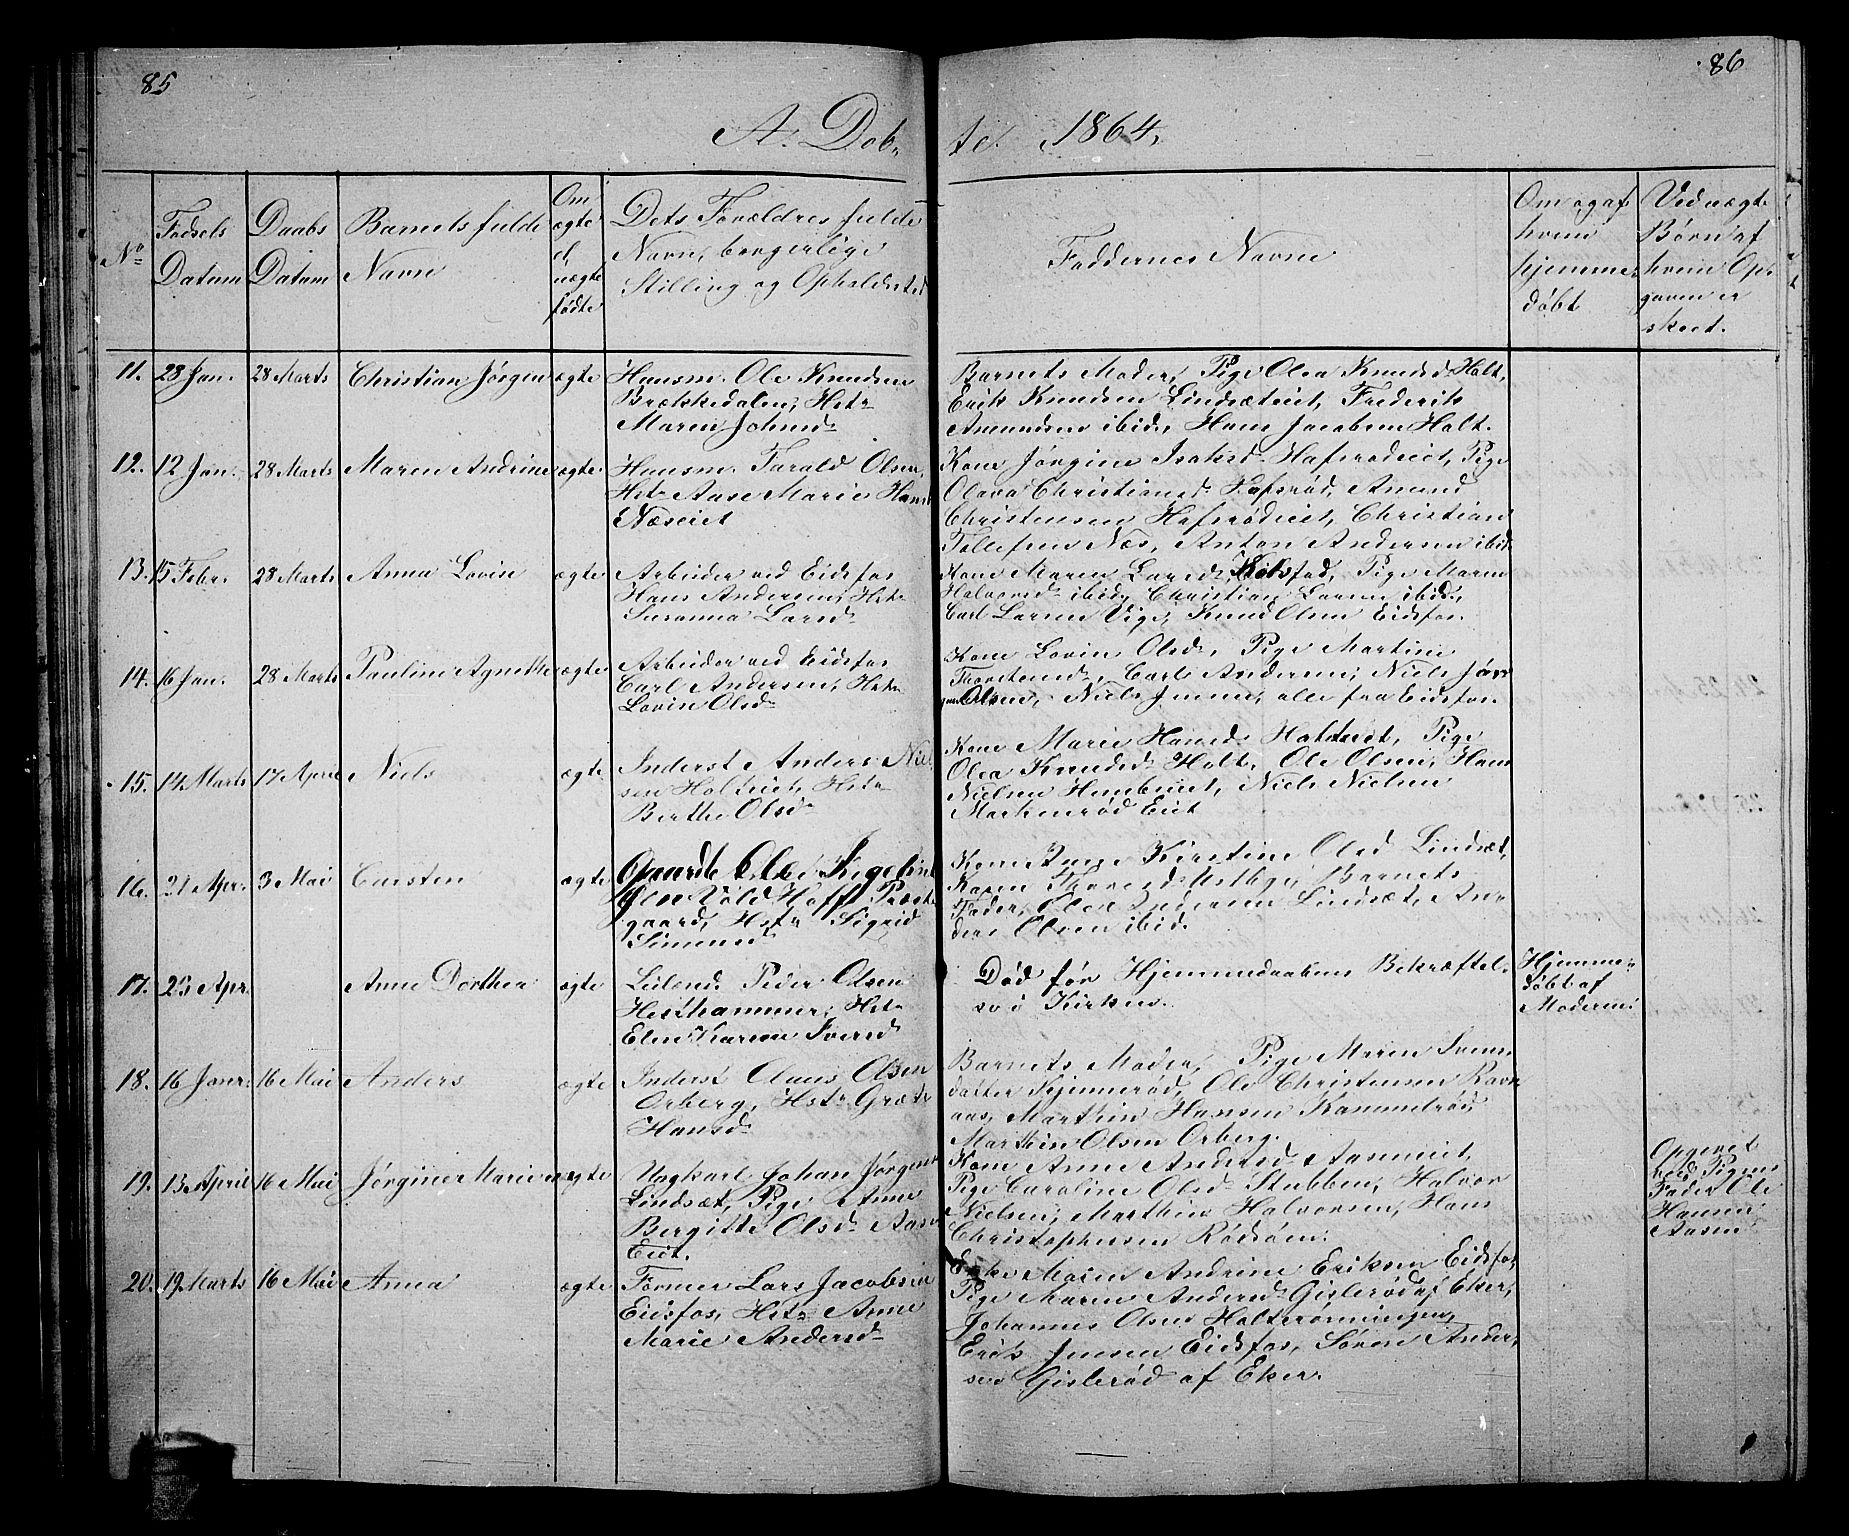 85
86
A. Dob-
te. 1864.
No
Fødsels Datum
Daabs Datum
Barnets fulde Navn
Om ægte el. uægte fødte
Dets Forældres fulde Navn, borgerlige Stilling og Opholdssted
Faddernes Navne
Om og af hvem hjemmedøbt
Ved uægte Børn af hvem Opgaven er skeet.
11. 28 Jan. 28 Marts Christian Jørgen ægte
Huusm. Ole Knudsen
Brækkedalen, Hstr
Maren Johnsd
Barnets Moder, Pige Olea Knudsd Holt,
Erik Knudsen Lindsæteiet, Frederik
Amundsen ibid., Hans Jacobsen Holt.
12. 12 Jan. 28 Marts Maren Andrine ægte
Huusm. Tarald Olsen,
Hstr Aase Marie Hansd
Næseiet
Kone Jørgine Isaksd Hafsrødeiet, Pige
Olava Christiansd Hafsrød, Amund
Christensen Hafsrødeiet, Christian
Tollefsen Næs, Anton Andersen ibid.
13. 15 Febr. 28 Marts Anna Lovise ægte
Arbeider ved Eidsfos
Hans Andersen, Hstr
Susanna Larsd
Kone Maren Larsd, Pige Maren
Halvorsd ibid, Christian Larsen ibid.,
Carl Larsen Vige, Knud Olsen Eidsfos.
14. 16 Jan. 28 Marts Pauline Agnethe ægte
Arbeider ved Eidsfos
Carl Andersen, Hstr
Lovise Olsd
Kone Lovise Olsd, Pige Martine
Thorstensd, Carl Andersen, Niels Jør
gen Olsen, Niels Jensen, alle fra Eidsfos.
15. 14 Marts 17 April Niels ægte
Inderst Anders Niel
sen Holteiet, Hstr
Berthe Olsd
Kone Marie Hansd Holteiet, Pige
Olea Knudsd Holt, Ole Olsen, Hans
Nielsen, Niels Nielsen
Markenrød Eiet
16. 21 Apr. 3 Mai Carsten ægte
Ole
Hoff Præste
gaard, Hstr Sigrid
Simensd
Kone Kirstine Olsd Lindsæt,
Karen Thoresd, Barnets
Fader, Ole Andersen Lindsæt, An
ders Olsen ibid.
17. 23 Apr. Anne Dorthea ægte
Leilend. Peder Olsen
Hesthammer, Hstr
Elen Karine Iversd
Død før Hjemmedaabens Bekræftel
se i Kirken.
Hjemme-
døbt af
Moderen.
18. 16 Janr. 16 Mai Anders ægte
Inderst Claus Olsen
Orberg, Hstr Grete
Hansd
Barnets Moder, Pige Maren Svens
datter Kjennerød, Ole Christensen Ravn
aas, Marthin Hansen Kammelrød,
Marthin Olsen Orberg.
19. 13 April 16 Mai Jørgine Marie uægte
Ungkarl Johan Jørgens
Lindsæt, Pige Anne
Bergitte Olsd Aasn
Eiet.
Kone Anne Andersd Aasneiet,
Pige Caroline Olsd Stubben, Halvor
Nielsen, Marthin Halvorsen, Hans
Christophersen Rødsøen.
Opgivet
ved Pigens
Fader Ole
Hansen
Aasen
20. 19 Marts 16 Mai Anna ægte
Former Lars Jacobsen
Eidsfos, Hstr Anne
Marie Andersd
Enke Maren Andrine Eriksen Eidsfos,
Pige Maren Andersd Gislerød af Eker,
Johannes Olsen Holterønningen,
Erik Jensen Eidsfos, Søren Ander
sen Gislerød af Eker.